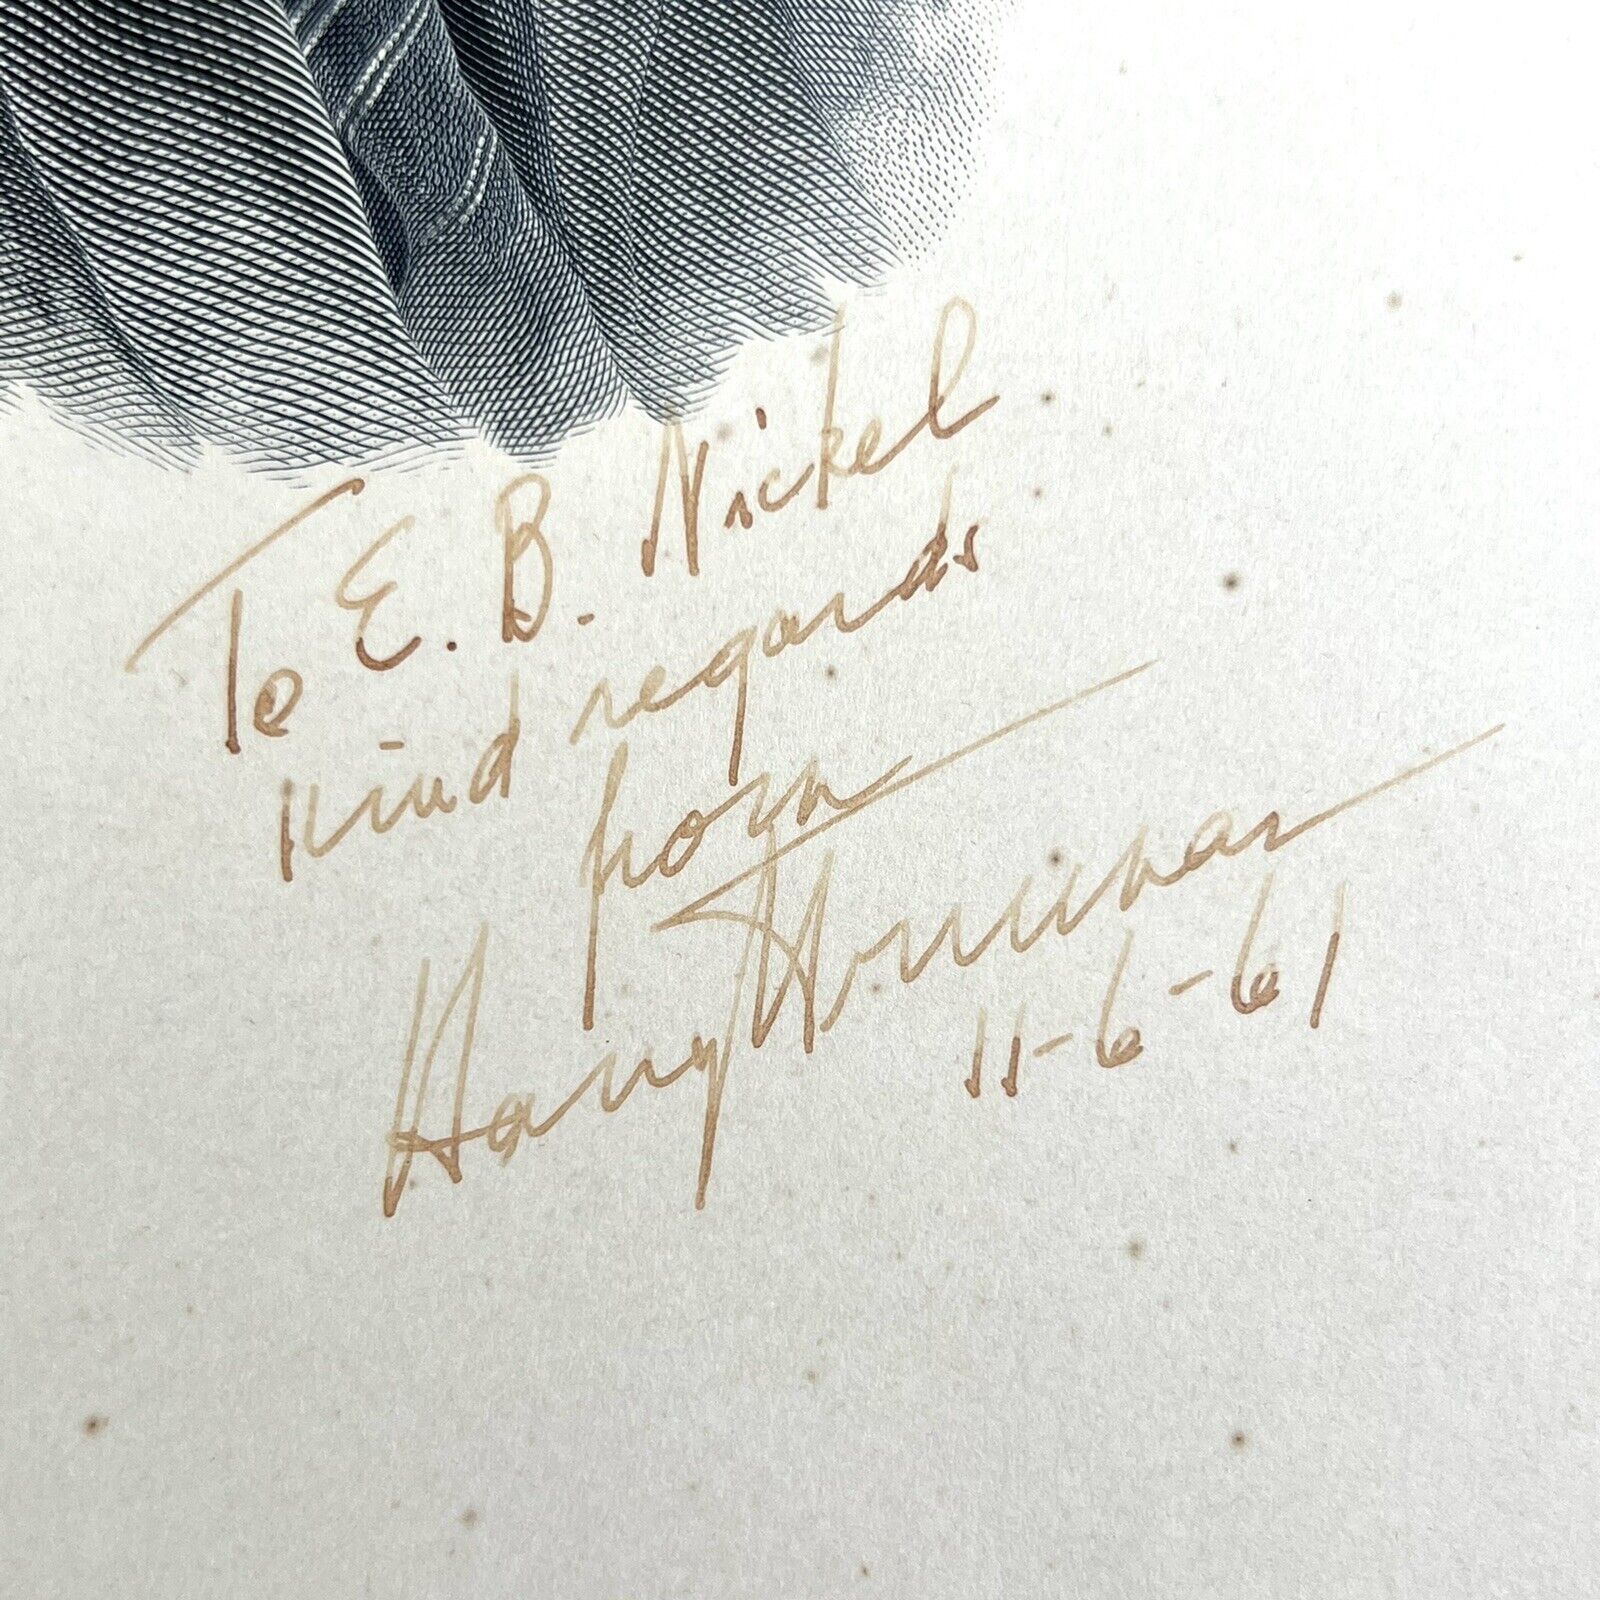 To E. B. Nickel
kind regards
from
Harry Truman
11-6-61